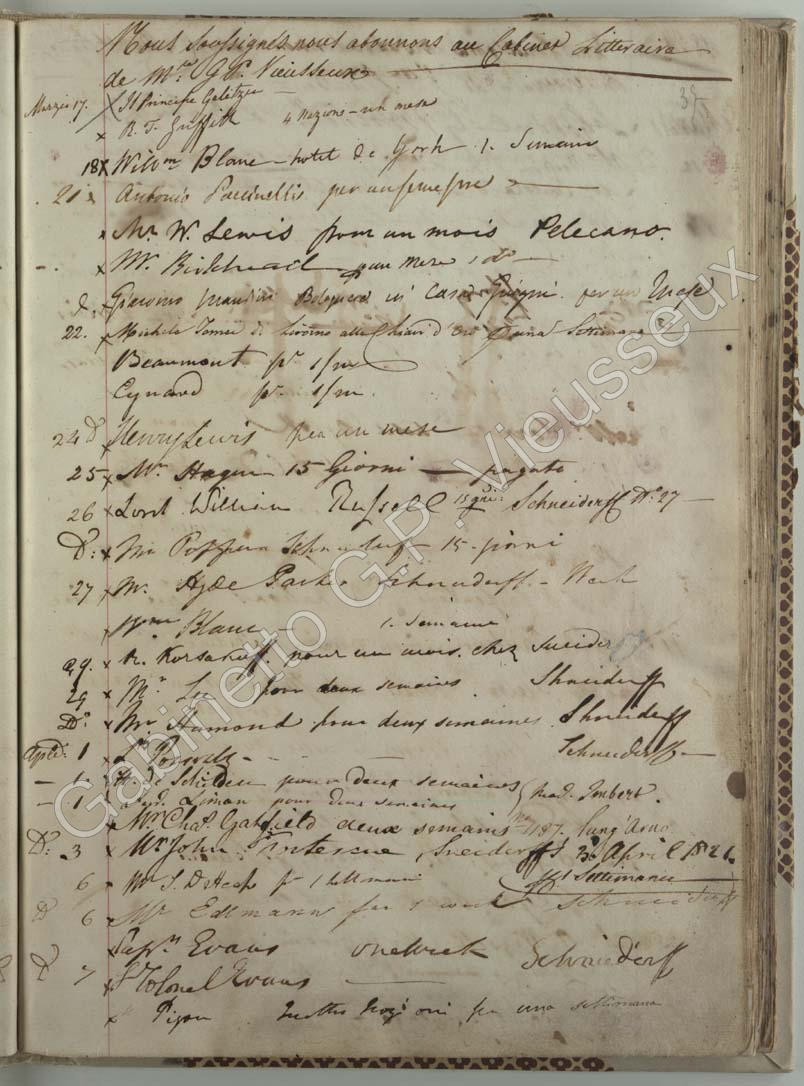 Nous soussignés nous abonnons au Cabinet Litteraire
de Mr. G. P. Vieusseux
39
Marzo 17. Il Principe Galitzin
R. T. Griffith 4 Nazioni - un mese
18 Willm Blane - hotel de York 1. Semaine
21 Antonio Puccinelli per un semestre
Mr W. Lewis pour un mois Pelecano.
Mr. Birkhead per un Mese do
Giacomo in Casa per un Mese
22. Michele di Livorno alle Chiavi d'Oro Settimana
Beaumont pr. 1/m
Eynard pr. 1/m.
24 D Henry Lewis per un mese
25 Mr Hagen 15 Giorni - pagato
26 Lord William Russell 15 Schneiderff No. 27
Do: Mr Schneiderff 15 giorni
27 Mr. Hyde Parker Schneiderff - Week
Wm Blane - 1. Semaine
29. R. Korsakoff. pour un mois. chez Sneider
29 Mr Lee pour deux semaines Shneiderff
Do Mr Hamond pour deux semaines. Shneiderff
Aple. 1 Schneiderff
1 pour deux semaines
1 pour deux semaines Mad. Imbert.
Mr Chas. Gatfield deux semaines 1187. Lung' Arno
Do: 3 Mr John Fortescue, Sneiderff's 3 April 1821.
6 Mr S. pr 1 settimana
D 6 Mr Edtmann for 1 week Schneiderff
Capn. Evans one week Schniederff
D 7 Lt Colonel Evans
Pigou Quattro Nazioni per una settimana
Gabinetto G.P. Vieusseux